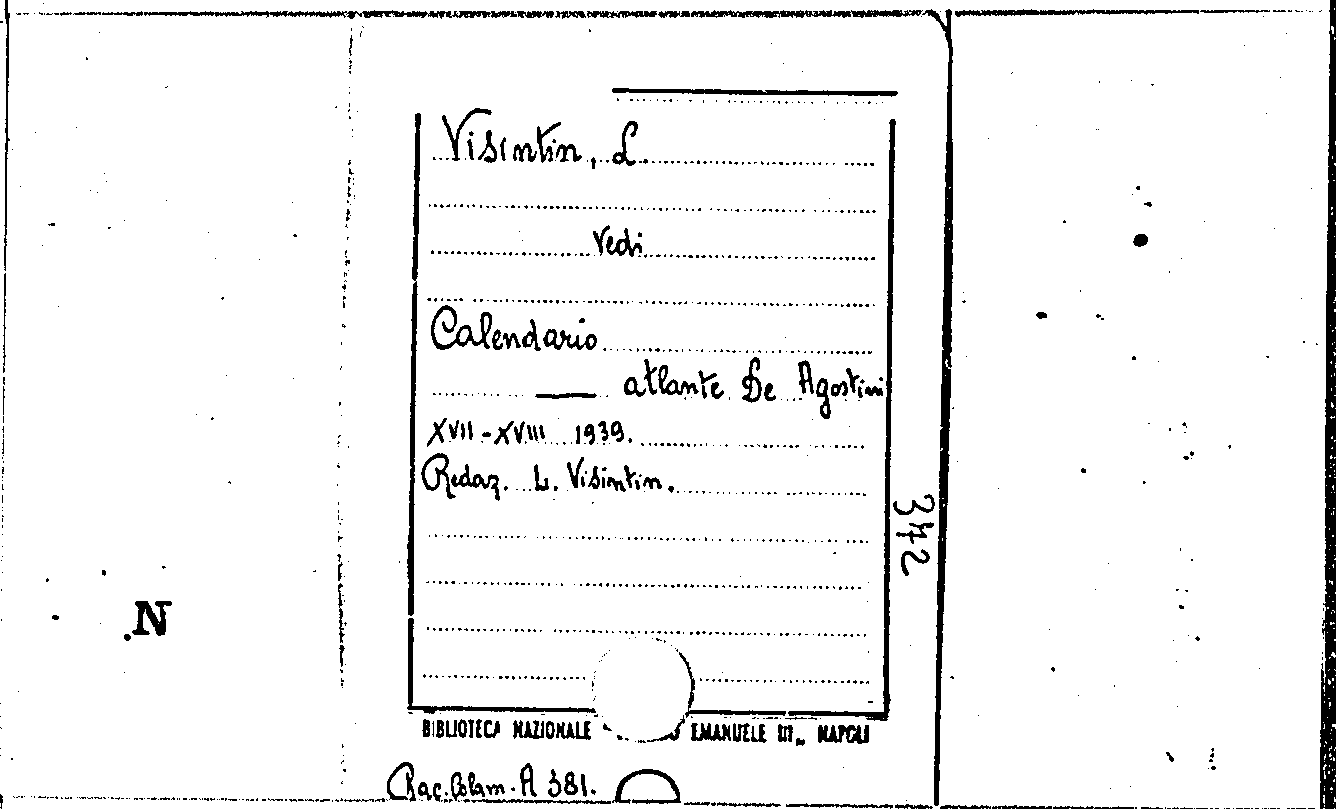 Visintin, L.
Vedi
Calendario
— atlante De Agostini
XVII - XVIII 1939.
Redaz. L. Visintin.
372
.N
BIBLIOTECA NAZIONALE EMANUELE III„ NAPOLI
Rac. Colam. A 381.